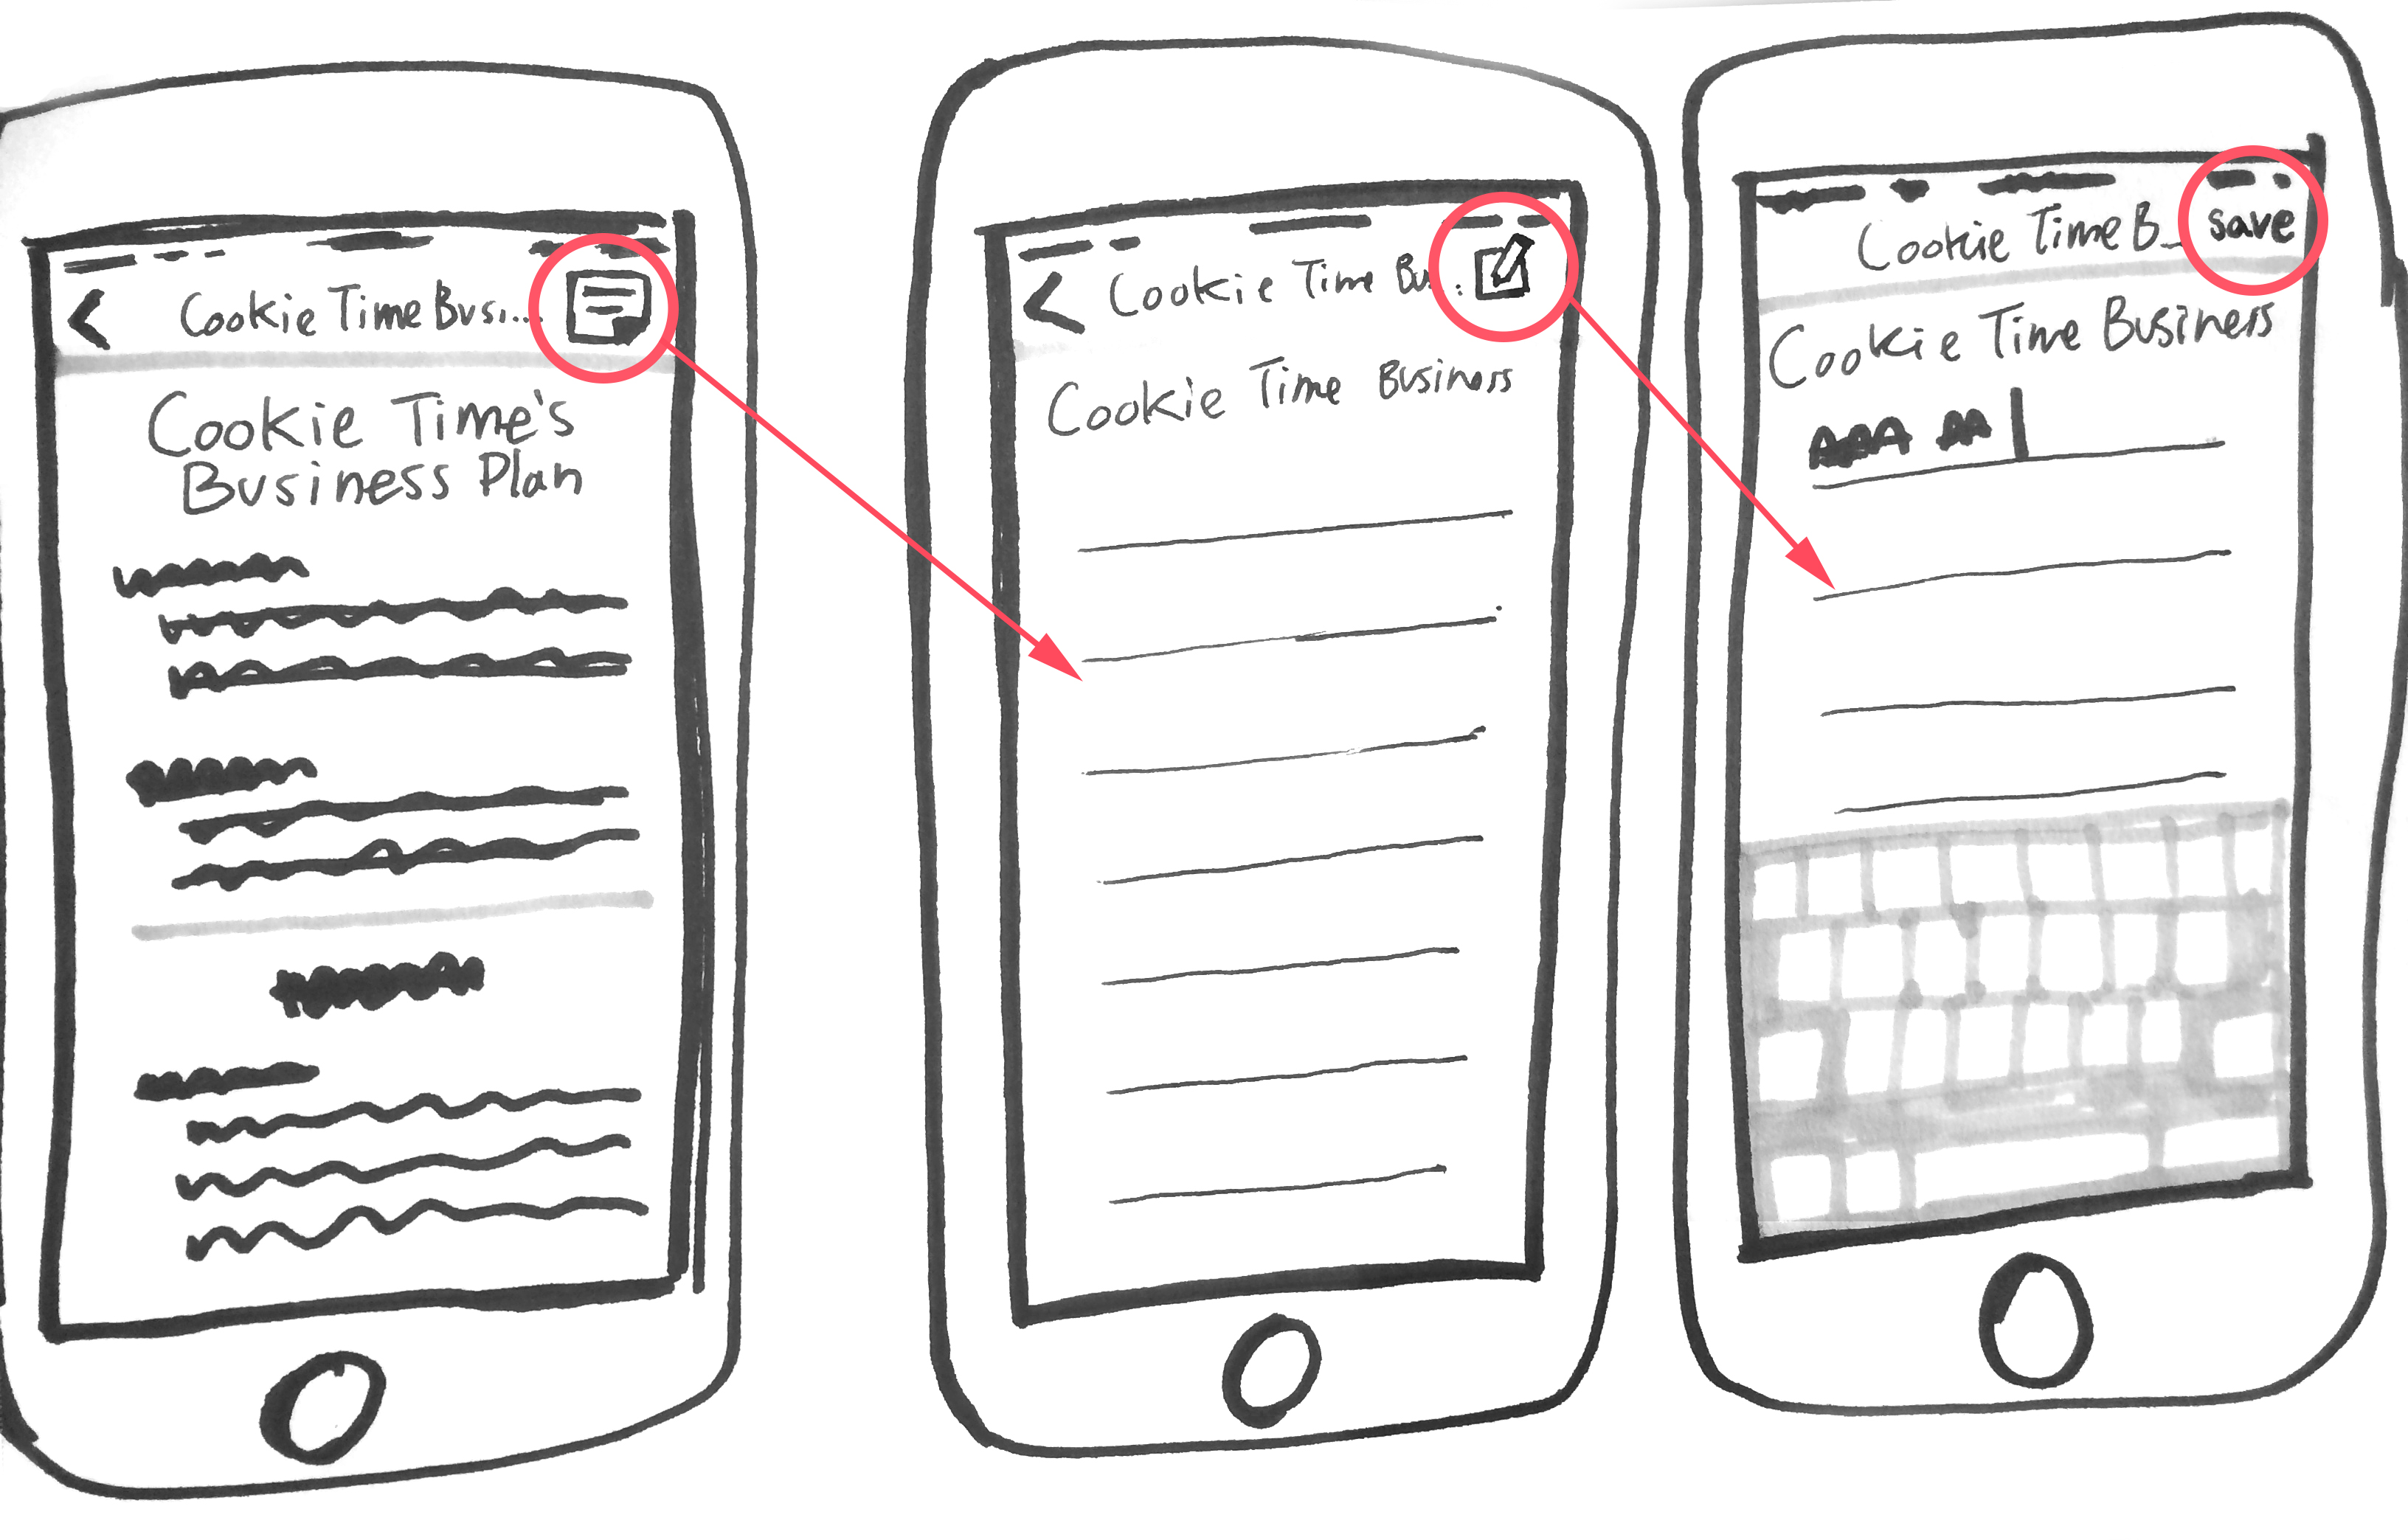 Cookie Time Busi...
Cookie Time's
Business Plan
Cookie Time Bus..
Cookie Time Business
Cookie Time B_
save
Cookie Time Business
AAA AA